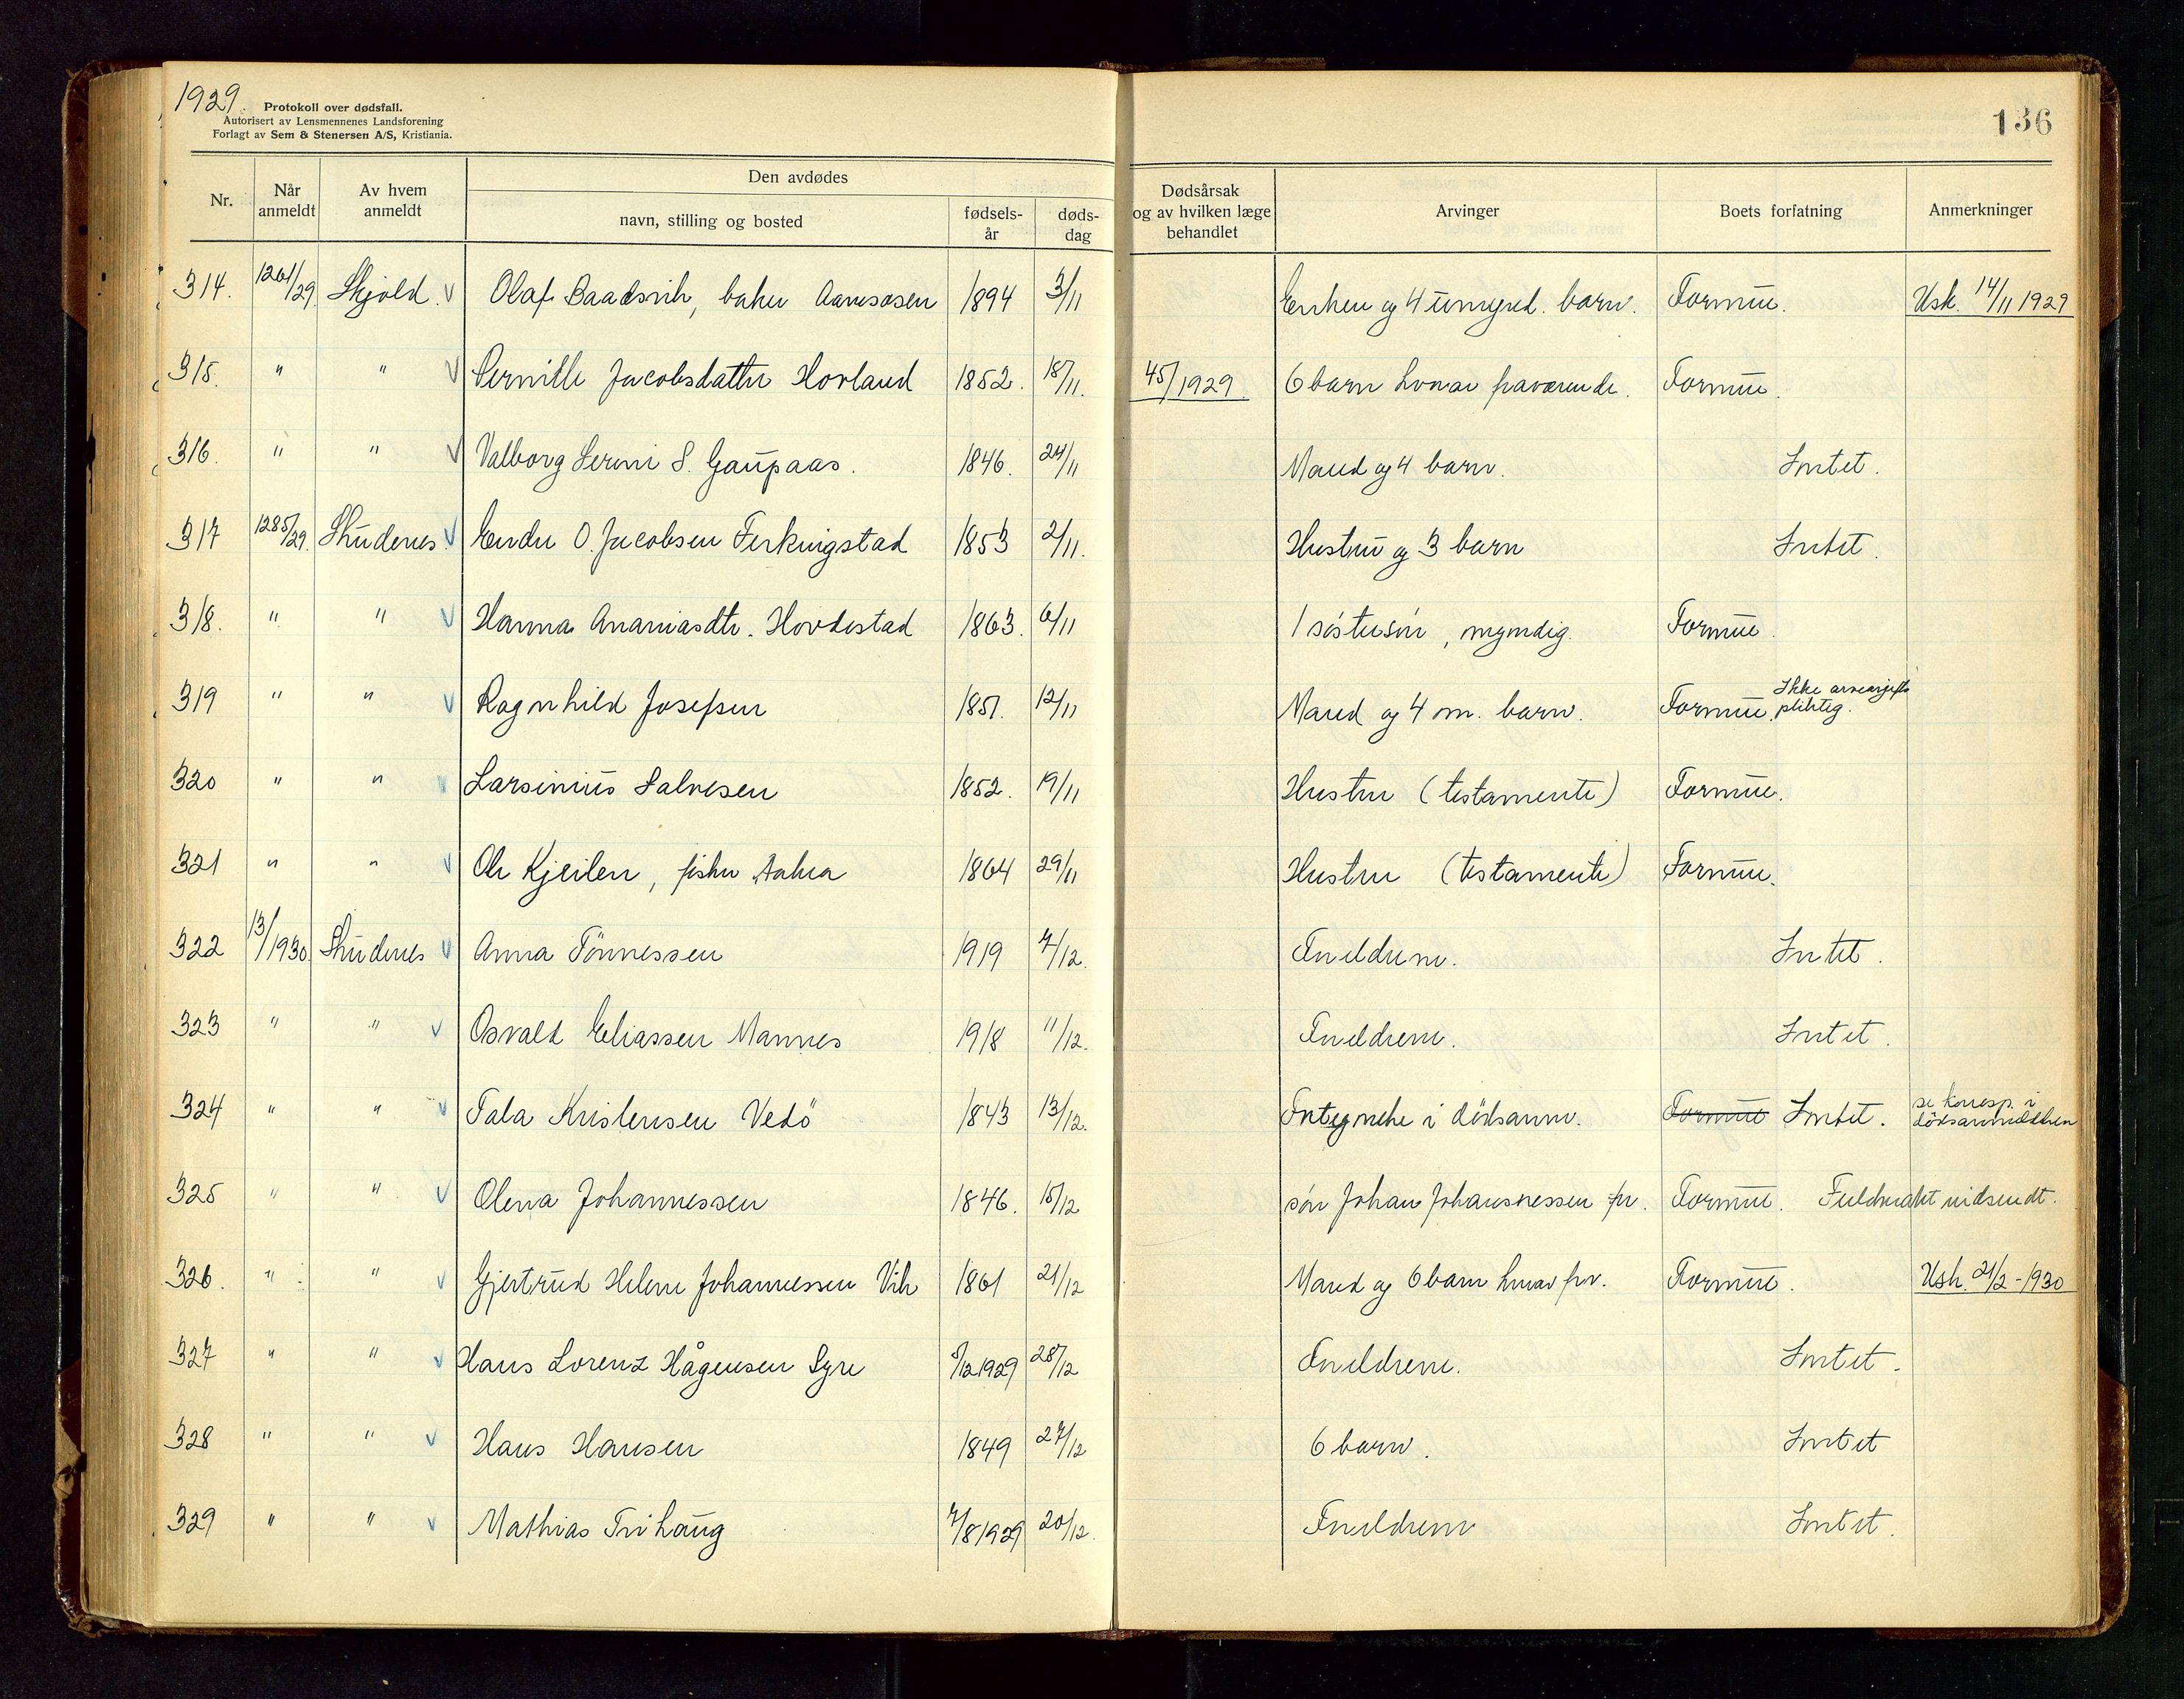 1929.
Protokoll over dødsfall.
Autorisert av Lensmennenes Landsforening
Forlagt av Sem & Stenersen A/S, Kristiania.
136
Nr. Når anmeldt Av hvem anmeldt Den avdødes navn, stilling og bosted fødselsår dødsdag Dødsårsak og av hvilken læge behandlet Arvinger Boets forfatning Anmerkninger
314. 1261/29 Skjold. V Olaf Baadsvik, baker Aanesøsen 1894 3/11 Enken og 4 umynd. barn. Formue. Usk. 14/11 1929
315. " " V Pernille Jacobsdatter Hovland 1852. 18/11. 45/1929. 6 barn hvorav fraværende. Formue.
316. " " V Valborg Serine S. Gaupaas. 1846. 24/11 Mand og 4 barn. Intet.
317 1285/29. Skudenes. V Endre O. Jacobsen Ferkingstad 1853 2/11. Hustru og 3 barn Intet.
318. " " V Hanna Ananiasdtr. Hovdestad 1863. 6/11 1 søstersøn, myndig. Formue.
319 " " V Ragnhild Josefsen 1851. 12/11 Mand og 4 m. barn. Formue. Ikke arveavgifts pliktig.
320 " " V Larsinius Salvesen 1852. 19/11 Hustru (testamente) Formue.
321 " " V Ole Kjeilen, fisker Aakra 1864 29/11 Hustru (testamente) Formue.
322 13/1930. Skudenes V Anna Tönnessen 1919 7/12. Foreldrene. Intet.
323 " " V Osvald Eliassen Mannes 1918 11/12. Foreldrene. Intet.
324 " " V Tala Kristensen Vedö 1843 13/12. i dödsanm. Formue Intet. se korresp. i dödsanmeldelsen
325 " " V Olena Johannessen 1846. 15/12 sön Johan Johannessen fr. Formue. Fuldmakt nidsendt.
326. " " V Gjertrud Helene Johannessen Vik 1861 21/12 Mand og 6 barn hvorav frv. Formue. Usk. 21/2-1930
327 " " V Hans Lorenz Hågensen Syre 5/12 1929 28/12 Foreldrene. Intet.
328 " " V Hans Hansen 1849 27/12 6 barn. Intet
329 " " V Mathias Trihaug 7/8 1929 20/12. Foreldrene Intet.